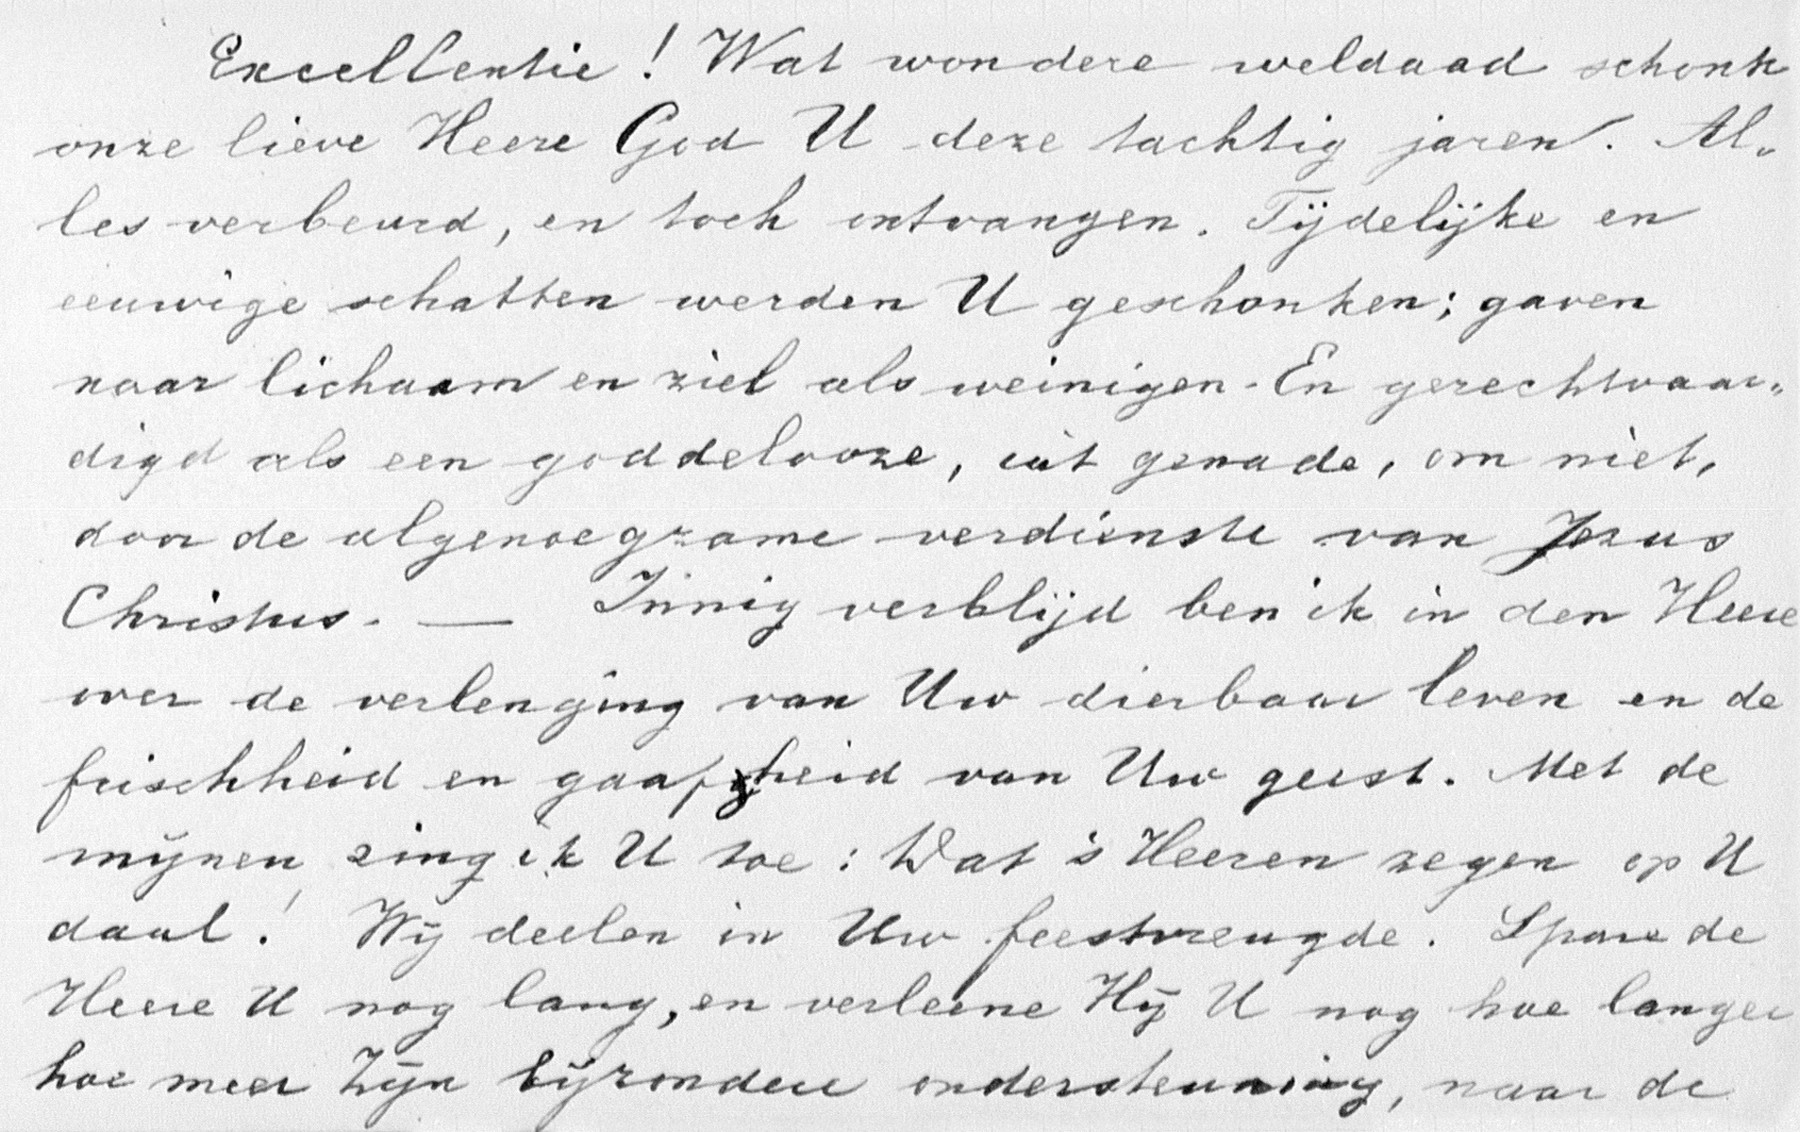 Excellentie! Wat wondere weldaad schonk
onze lieve Heere God U deze tachtig jaren. Al„
les verbeurd, en toch ontvangen. Tijdelijke en
eeuwige schatten werden U geschonken; gaven
naar lichaam en ziel als weinigen. En gerechtvaar„
digd als een goddelooze, uit genade, om niet,
door de algenoegzame verdienste van Jezus
Christus. — Innig verblijd ben ik in den Heere
over de verlenging van Uw dierbaar leven en de
frischheid en gaafheid van Uw geest. Met de
mijnen zing ik U toe: Dat 's Heeren zegen op U
daal! Wij deelen in Uw feestvreugde. Spare de
Heere U nog lang, en verleene Hij U nog hoe langer
hoe meer Zijn bijzondere ondersteuning, naar de